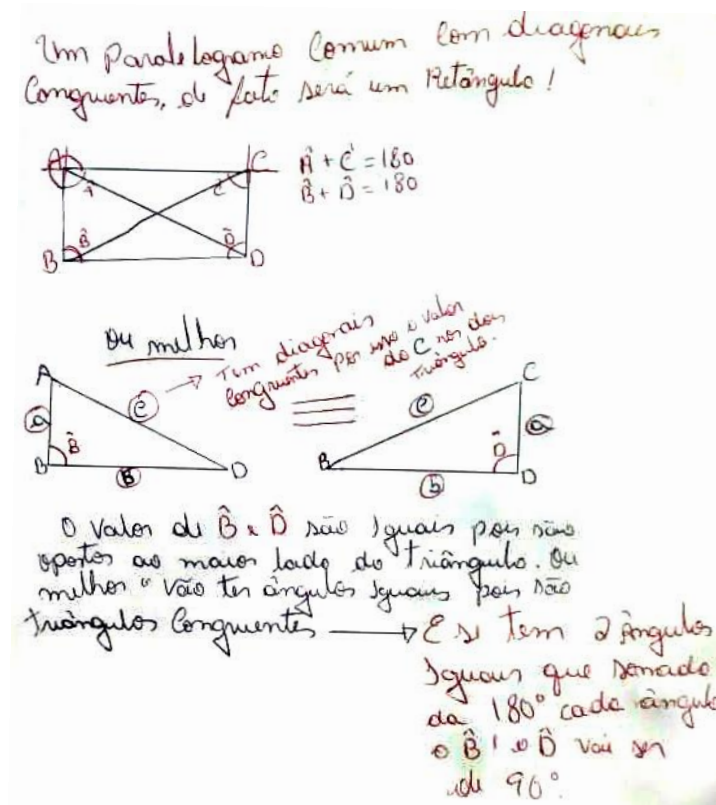 Um Paralelogramo Comum Com diagonais
Congruentes, de fato será um Retângulo!
A C
Â + Ĉ = 180
B̂ + D̂ = 180
Â Ĉ
B̂ D̂
B D
Ou melhor
Tem diagonais
Congruentes por isso o valor
do C nos dois
triângulo.
A C
a c c a
B̂ D̂
B b D B b D
O valor de B̂ e D̂ são Iguais pois são
opostos ao maior lado do triângulo. Ou
melhor "Vão ter ângulos Iguais pois são
triângulos Congruentes
E si tem 2 ângulos
Iguais que somado
da 180° cada ângulo
o B̂ e D̂ vai ser
de 90°.